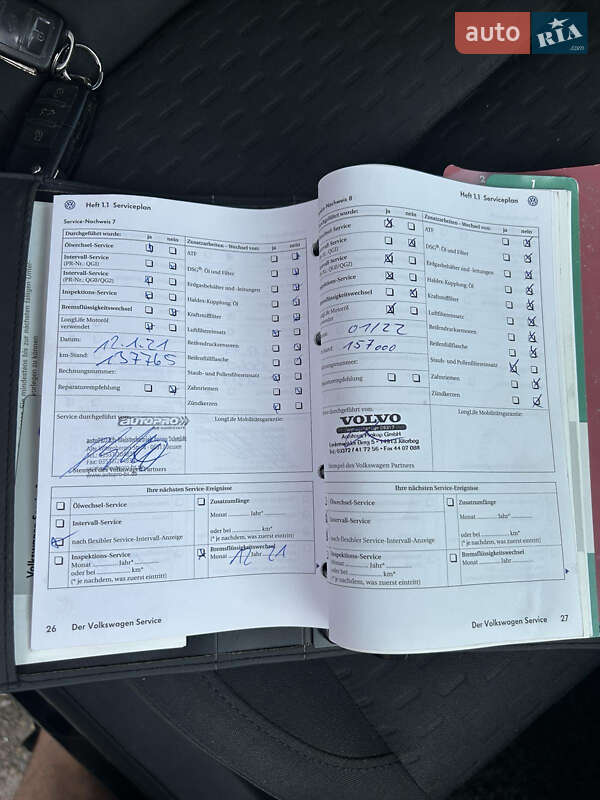 auto RIA
.com
2
1
Heft 1.1 Serviceplan
Service-Nachweis 7
Durchgeführt wurde: ja nein Zusatzarbeiten – Wechsel von: ja nein
Ölwechsel-Service
ATF
Intervall-Service
(PR-Nr.: QG1)
DSG®: Öl und Filter
Intervall-Service
(PR-Nr.: QG0/QG2)
Erdgasbehälter und -leitungen
Inspektions-Service
Haldex-Kupplung: Öl
Bremsflüssigkeitswechsel
Kraftstoffilter
LongLife Motoröl
verwendet
Luftfiltereinsatz
Datum: 12.1.21
Reifendruckersensoren
km-Stand: 137765
Reifenfüllflasche
Rechnungsnummer:
Staub- und Pollenfiltereinsatz
Reparaturempfehlung
Zahnriemen
Zündkerzen
Service durchgeführt von:
LongLife Mobilitätsgarantie:
autoPRO
Stempel des Volkswagen Partners
Ihre nächsten Service-Ereignisse
Ölwechsel-Service
Zusatzumfänge
Intervall-Service
Monat Jahr*
nach flexibler Service-Intervall-Anzeige
oder bei km*
(* je nachdem, was zuerst eintritt)
Inspektions-Service
Monat Jahr*
oder bei km*
(* je nachdem, was zuerst eintritt)
Bremsflüssigkeitswechsel
Monat 12 Jahr 21
26 Der Volkswagen Service
Heft 1.1 Serviceplan
Service-Nachweis 8
wurde: ja nein Zusatzarbeiten – Wechsel von: ja nein
Service
ATF
Service
QG1)
DSG®: Öl und Filter
Service
QG0/QG2)
Erdgasbehälter und -leitungen
Service
Haldex-Kupplung: Öl
flüssigkeitswechsel
Kraftstoffilter
Motoröl
Luftfiltereinsatz
01/22
Reifendruckersensoren
157000
Reifenfüllflasche
Staub- und Pollenfiltereinsatz
empfehlung
Zahnriemen
Zündkerzen
durchgeführt von:
LongLife Mobilitätsgarantie:
VOLVO
Stempel des Volkswagen Partners
Ihre nächsten Service-Ereignisse
Ölwechsel-Service
Zusatzumfänge
Intervall-Service
Monat Jahr*
nach flexibler Service-Intervall-Anzeige
oder bei km*
(* je nachdem, was zuerst eintritt)
Inspektions-Service
Monat Jahr*
oder bei km*
(* je nachdem, was zuerst eintritt)
Bremsflüssigkeitswechsel
Monat Jahr*
Der Volkswagen Service 27